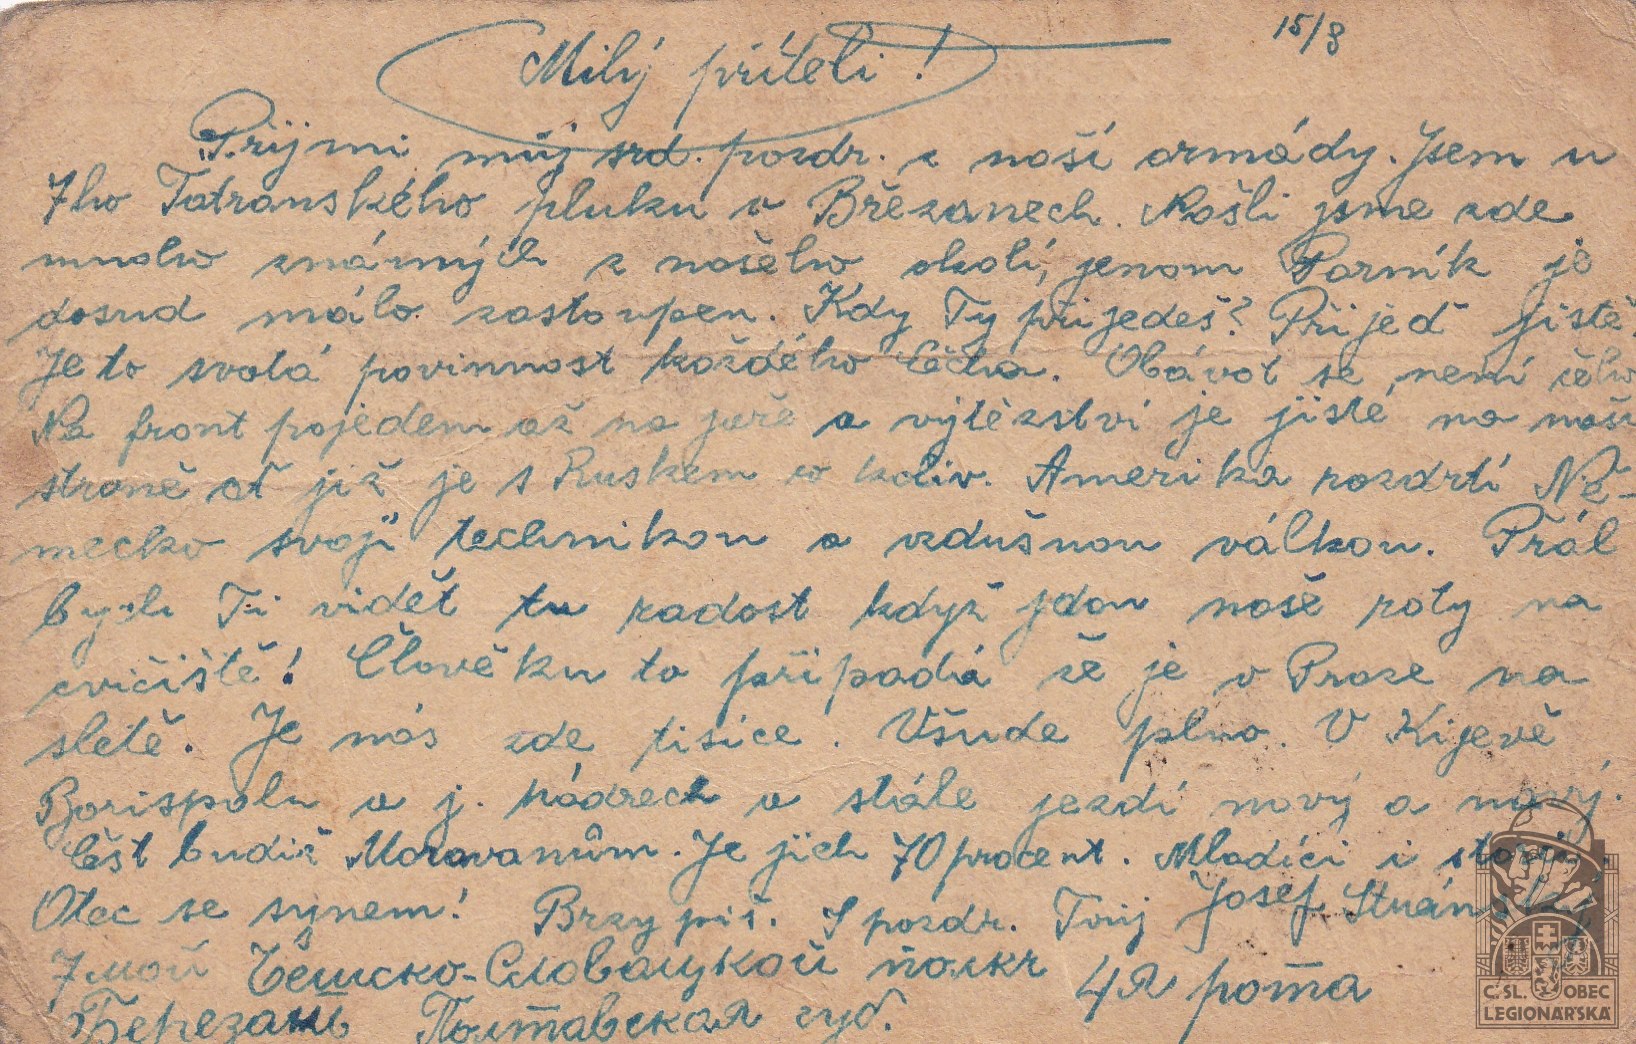 15/8
Milý příteli!
Přijmi můj srd. pozdr. z naší armády. Jsem u
7ho Tatranského pluku v Březanech. Našli jsme zde
mnoho známých z našeho okolí, jenom Parník je
dosud málo zastoupen. Kdy Ty přijedeš? Přijeď jistě.
Je to svatá povinnost každého Čecha. Obávat se není čeho
Na front pojedem až na jaře a vítězství je jisté na naší
straně ať již je s Ruskem co koliv. Amerika rozdrtí Ně-
mecko svojí technikou a vzdušnou válkou. Přál
bych Ti vidět tu radost když jdou naše roty na
cvičiště! Člověku to připadá že je v Praze na
sletě. Je nás zde tisíce. Všude plno. V Kijevě
Borispolu a j. hádrech a stále jezdí nový a nový.
Čest budiž Moravanům. Je jich 70 procent. Mladíci i staří.
Otec se synem! Brzy piš. S pozdr. Tvůj Josef Stránský
7мой Чешско-Словацкой полкъ 4я рота
Березань Полтавская губ.
Č.SL. OBEC
LEGIONÁŘSKÁ